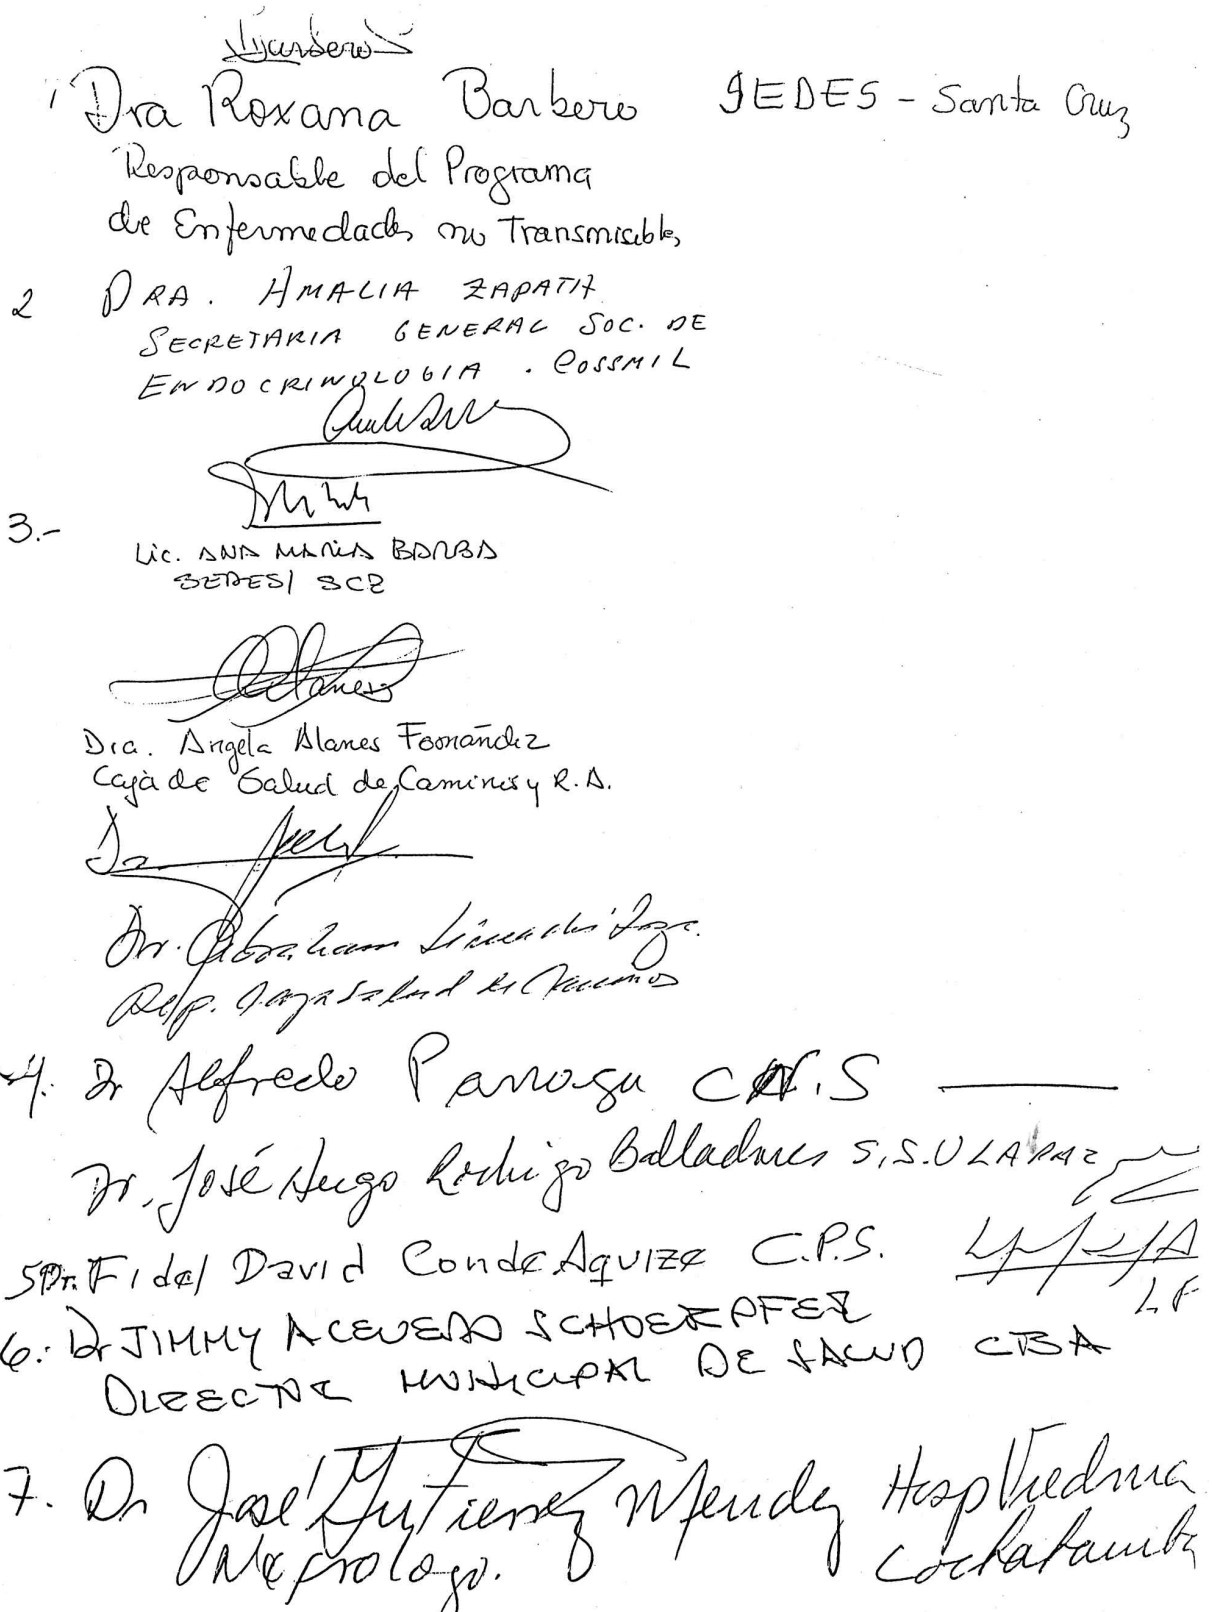 1 Dra Roxana Barbero SEDES - Santa Cruz
Responsable del Programa
de Enfermedades no Transmisibles
2 DRA. AMALIA ZAPATA
SECRETARIA GENERAL SOC. DE
ENDOCRINOLOGIA . COSSMIL
3.-
Lic. ANA MARIA BARBA
SEDES/ SCZ
Dra. Angela Alanes Fernández
Caja de Salud de Caminos y R.A.
Dr. Abraham
Resp. Caja Salud de Caminos
4. Dr Alfredo Parraga C.N.S
Dr. José Hugo Rodrigo Balladares S.S.U LA PAZ
5 Dr. Fidel David Conde Aquize C.P.S.
6. Dr JIMMY ACEVEDO SCHOERPFER
DIRECTOR MUNICIPAL DE SALUD CBBA
7. Dr José Gutierrez Mendez Hosp Viedma
Nefrologo. Cochabamba